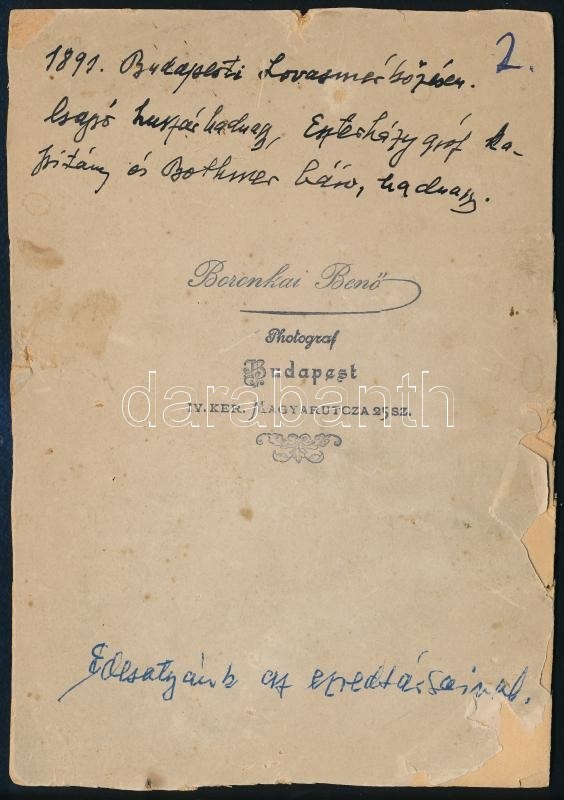 2.
1891. Budapesti Lovasmérkőzésen.
Csajó huszárhadnagy, Esterházy gróf ka-
pitány és Bothmer báró, hadnagy.
Boronkai Benő
Photograf
Budapest
darabanth
IV. KER. MAGYARUTCZA 25 SZ.
Édesatyánk az ezredtársaival.